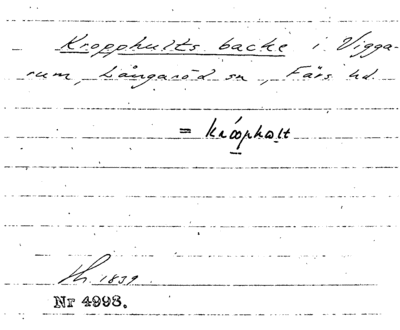 Kropphults backe i Vigga-
rum, Långaröd sn, Färs hd.
= kråphalt
Th 1839
Nr 4998.